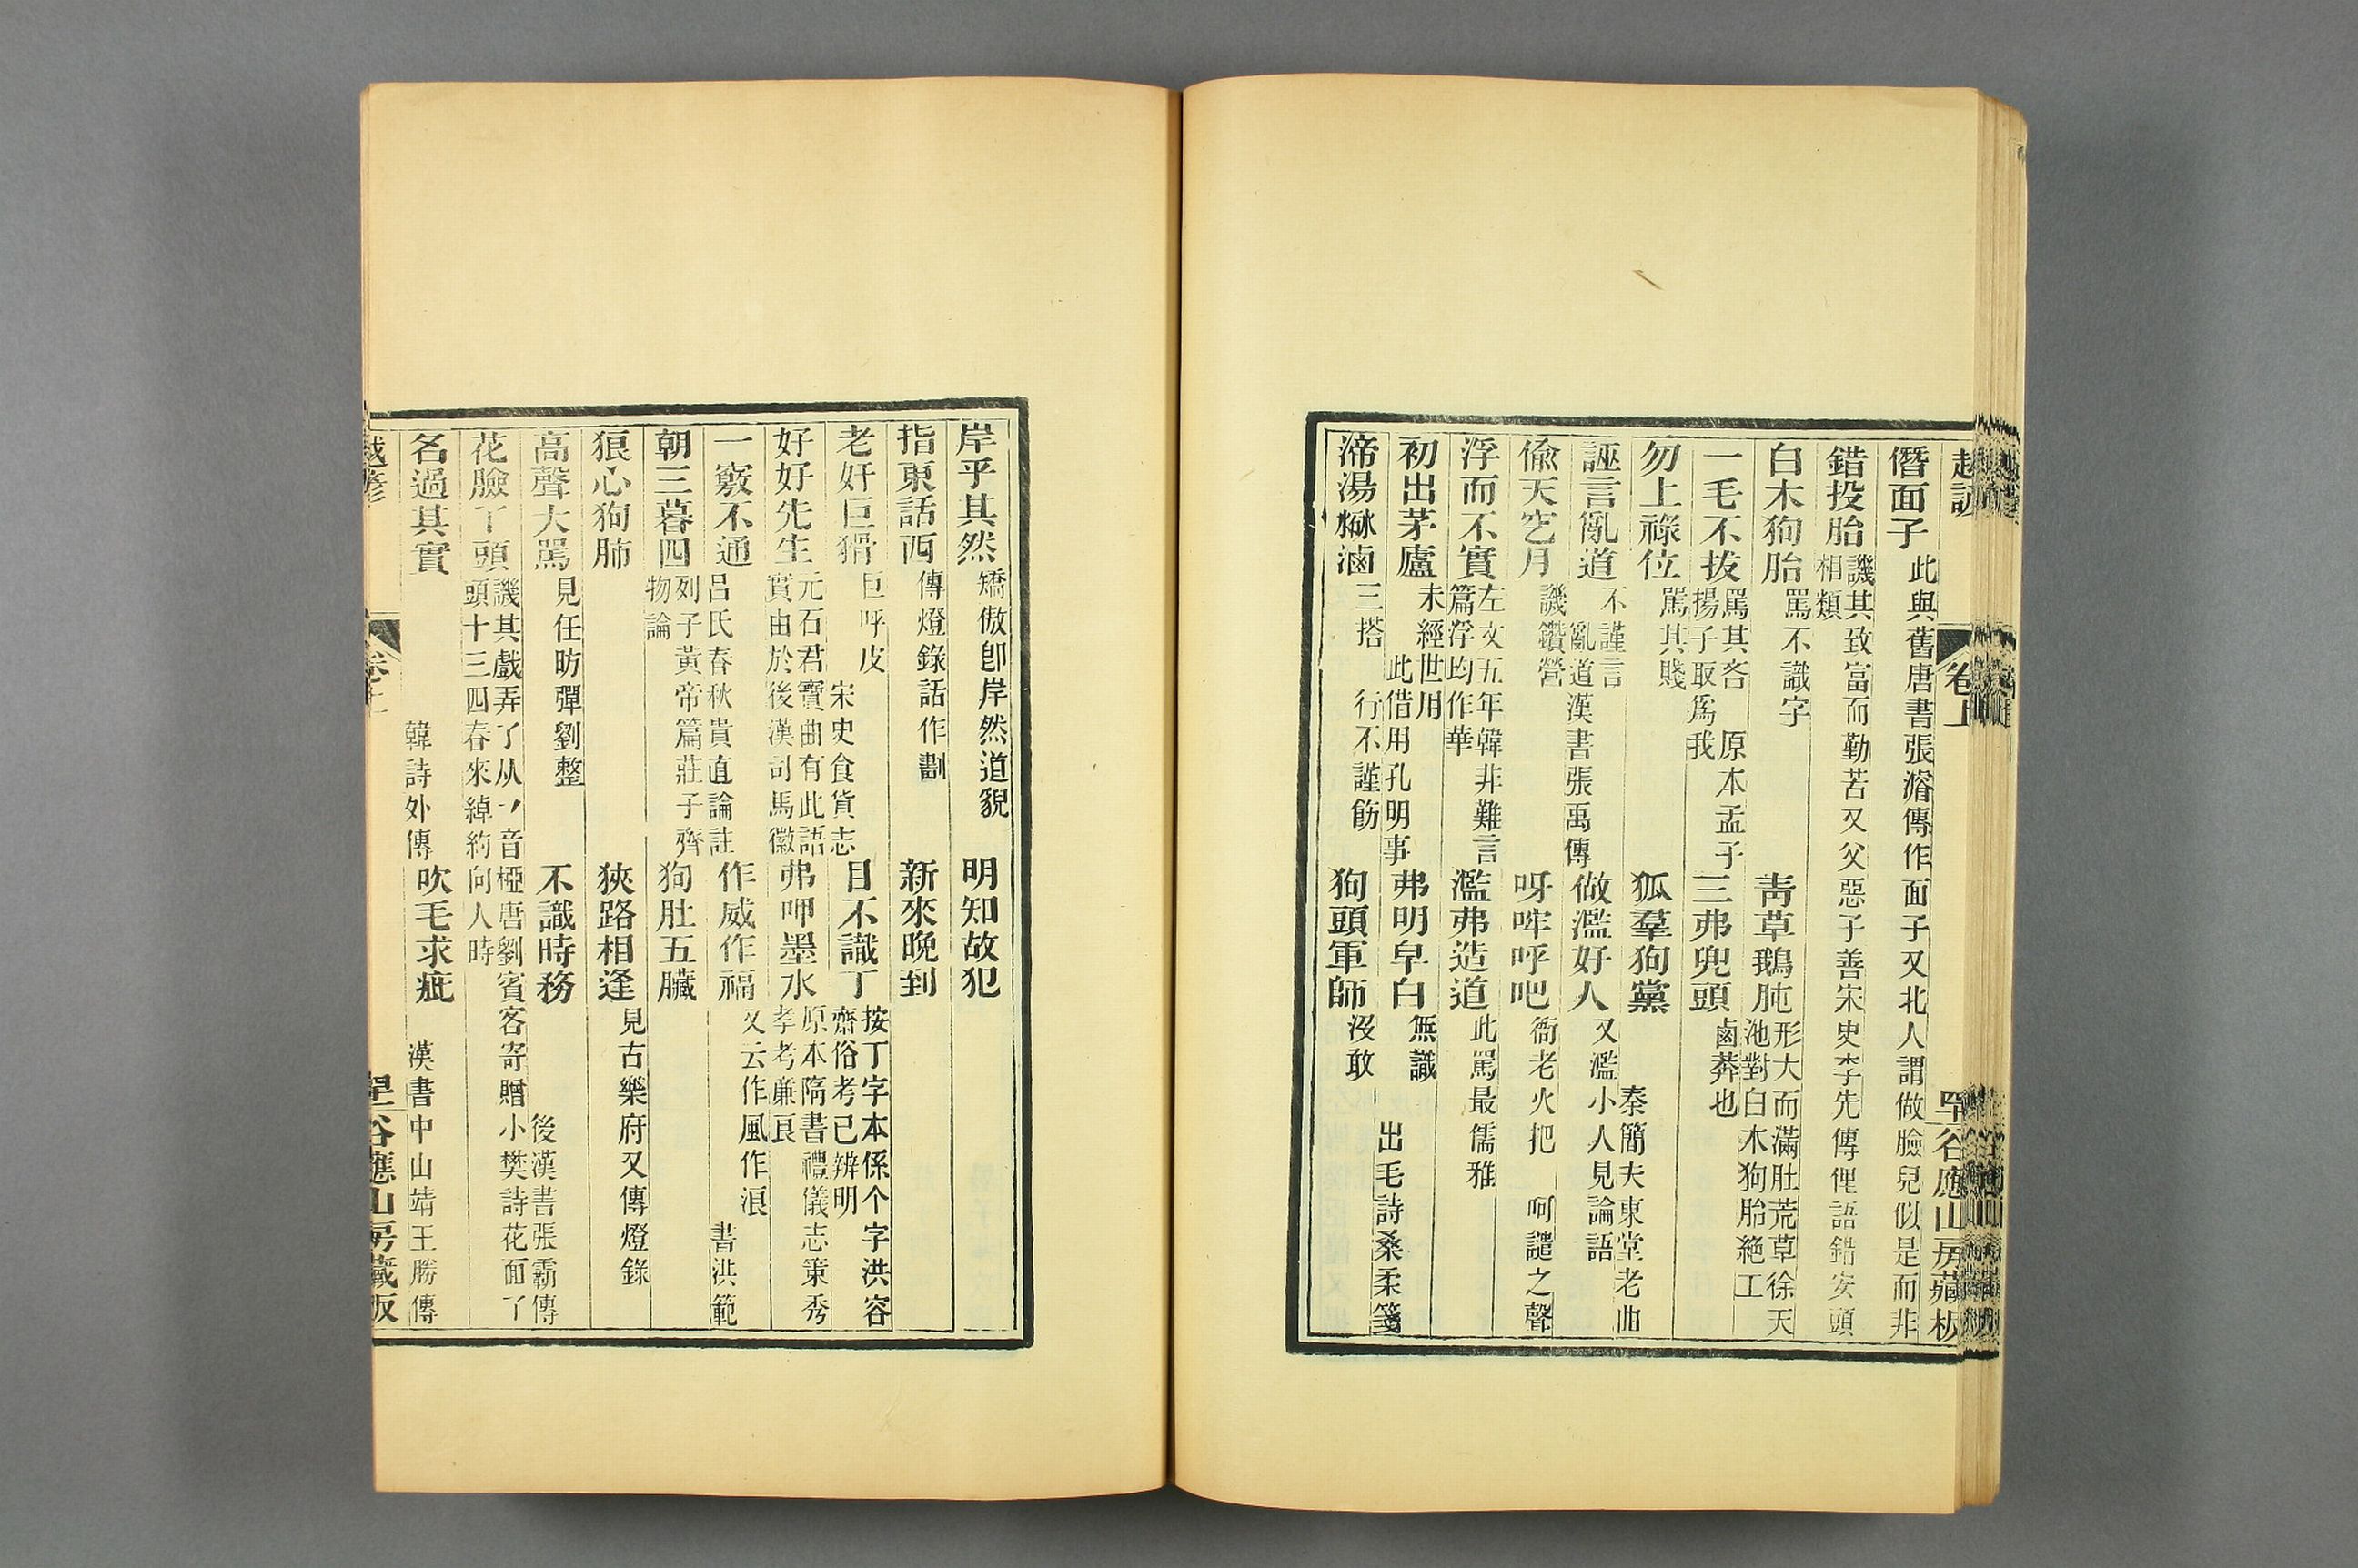 僭面子 此與舊唐書張濬傳作面子又北人謂做臉兒似是而非
錯投胎 譏其致富而勤苦又父惡子善宋史李先傳俚語錯安頭
相類
白木狗胎 罵不識字 青草鵝肫 形大而滿肚荒草徐天
池對白木狗胎絕工
一毛不拔 罵其吝 原本孟子
揚子取爲我 三弗兜頭 鹵莽也
勿上祿位 罵其賤 狐羣狗黨 秦簡夫東堂老曲
誣言亂道 不謹言
亂道漢書張禹傳 做濫好人 又濫小人見論語
偸天穵月 譏鑽營 呀哰呼吧 衙老火把 呵譴之聲
浮而不實 左文五年韓非難言
篇浮均作華 濫弗造道 此罵最儒雅
初出茅廬 未經世用
此借用孔明事 弗明皁白 無識
出毛詩桑柔箋
渧湯㵉滷 三搭 行不謹飭 狗頭軍師 沒敢
卷上
岸乎其然 矯傲卽岸然道貌 明知故犯
指東話西 傳燈錄話作劃 新來晚到
老奸巨猾 巨呼皮
宋史食貨志 目不識丁 按丁字本係个字洪容
齋俗考已辨明
好好先生 元石君寶曲有此語
實由於後漢司馬徽 弗呷墨水 原本隋書禮儀志策秀
孝考廉良
一竅不通 呂氏春秋貴直論註 作威作福 又云作風作浪
書洪範
朝三暮四 列子黃帝篇莊子齊
物論 狗肚五臟
狠心狗肺 狹路相逢 見古樂府又傳燈錄
高聲大罵 見任昉彈劉整 不識時務 後漢書張霸傳
花臉丫頭 譏其戲弄了从丫音椏唐劉賓客寄贈小樊詩花面丫
頭十三四春來綽約向人時
名過其實 韓詩外傳 吹毛求疵 漢書中山靖王勝傳
越諺
谷應山房藏板